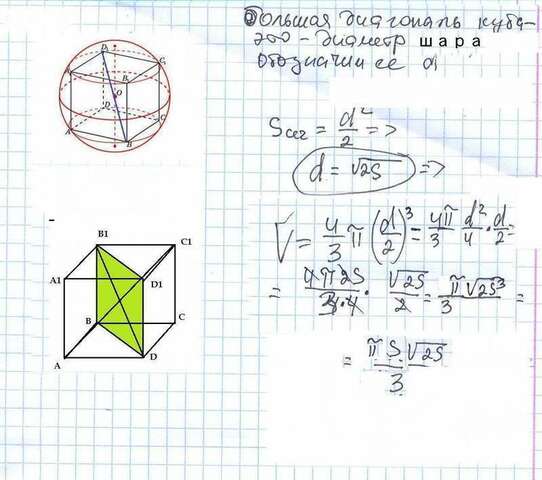 Большая диагональ куба-
это - диаметр шара
обозначим её d
Sсег = d²/2 =>
d = √2S =>
V = 4/3 π (d/2)³ = 4π/3 · d²/4 · d/2 =
= 4π2S/3·4 · √2S/2 = π√2S³/3 =
= πS√2S/3
B1
C1
A1
D1
B
C
A
D
D₁
A₁
C₁
B₁
O
D
A
C
B